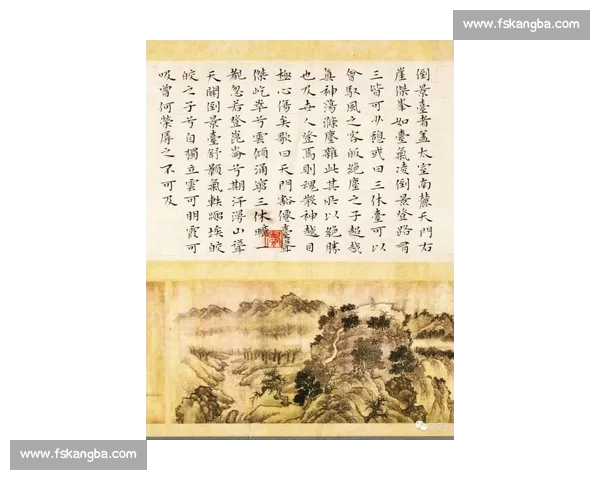 www.fskangba.com
倒景臺者蓋太室南麓天門右
崖傑峯如臺氣凌倒景登路有
三皆可少憩或曰三休臺可以
會馭風之客皈絶塵之子超越
真神蕩滌塵雜此其所以絶勝
也及世人登焉則魂散神越目
極心傷矣歌曰天門豁僊臺聳
傑屹崒兮雲傾涌窮三休曠一
觀忽若登崑崙兮期汗漫山聳
天開倒景臺舒顥氣軼囂埃皎
皎之子兮自獨立雲可朋霞可
吸曾何榮辱之不可及
www.fskangba.com